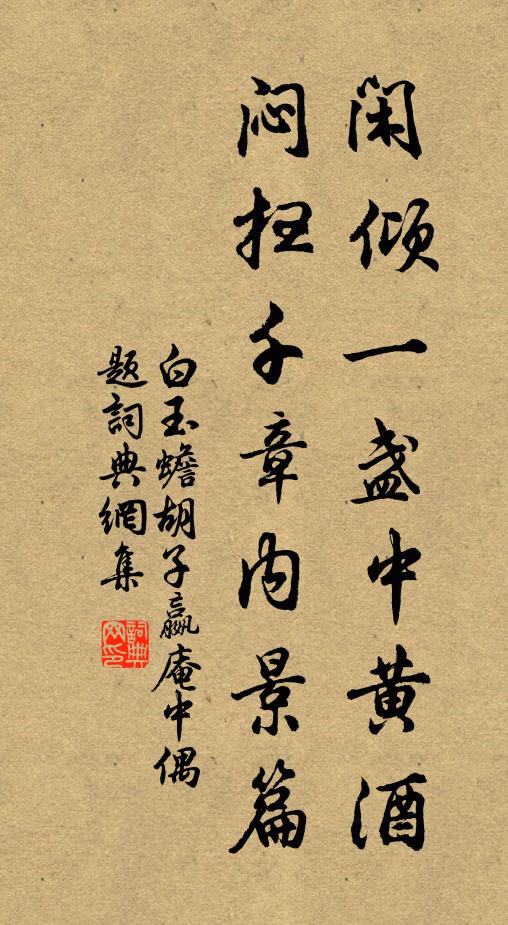 闲倾一盏中黄酒
闷扫千章内景篇
白玉蟾胡子嬴庵中偶
题詞典網集
詞典网印